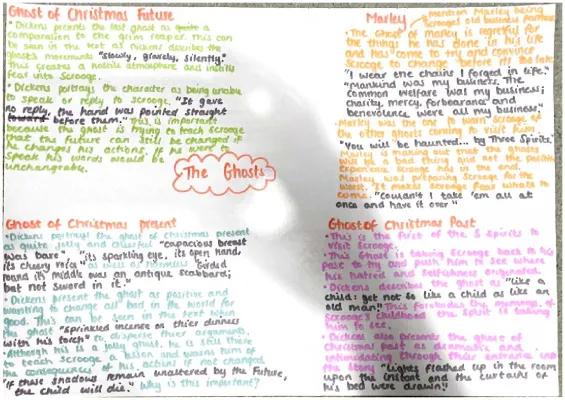 Ghost of Christmas Future
• Dickens presents the last ghost as quite a
comparasion to the grim reaper. This can
be seen in the text as Dickens describes the
ghosts movements "slowly, gravely, silently."
This creates a hostile atmosphere and instills
fear into Scrooge.
• Dickens portrays the character as being unable
to speak or reply to scrooge. "It gave
no reply, the hand was pointed straight
toward before them." This is important
because the ghost is trying to teach scrooge
that the future can still be changed if
he changes his actions. If he were to
speak his words would be
unchangable.
Marley
mention Marley being
scrooges old business partner
• The Ghost of marley is regretful for
the things he has done in his life
and has come to try and convince
Scrooge to change before it's too late
"I wear the chains I forged in life."
"Mankind was my business. The
common welfare was my business;
charity, mercy, forbearance and
benevolence were all my business."
• Marley was the one to warn scrooge of
the other ghosts coming to visit him.
"You will be haunted... by Three Spirits."
Marley is making out that the ghosts
will be a bad thing and not the positive
experience scrooge has in the end.
Marley was preparing Scrooge for the
worst. It makes scrooge fear whats to
come. "Couldn't I take 'em all at
once and have it over"
The Ghosts
Ghost of Christmas present
• Dickens portrays the ghost of christmas present
as quite jolly and cheerful "capacious breast
was bare" "its sparkling eye, its open hand,
its cheery voice" as well as "Girded
round its middle was an antique scabbard;
but not sword in it."
• Dickens present the ghost as positive and
wanting to change all bad in the world for
good. This can be seen in the text when
the ghost "sprinkled incense on their dinners
with his torch" to disperse their arguments.
• Although his is a kind ghost, he is still there
to teach scrooge a lesson and warns him of
the consequences of his actions if not changed
"If these shadows remain unaltered by the Future,
the child will die." Why is this important?
Ghost of Christmas Past
• This is the first of the 3 spirits to
visit Scrooge.
• This Ghost is taking Scrooge back to his
past to try and push him to see where
his hatred and selfishness originated.
• Dickens describes the ghost as "like a
child: yet not so like a child as like an
old man!" This foreshadows the memories of
Scrooge's childhood the spirit is taking
him to see.
• Dickens also presents the ghost of
christmas past as dramatic and
intimidating through their entrance into
the story "Lights flashed up in the room
upon the instant and the curtains of
his bed were drawn."